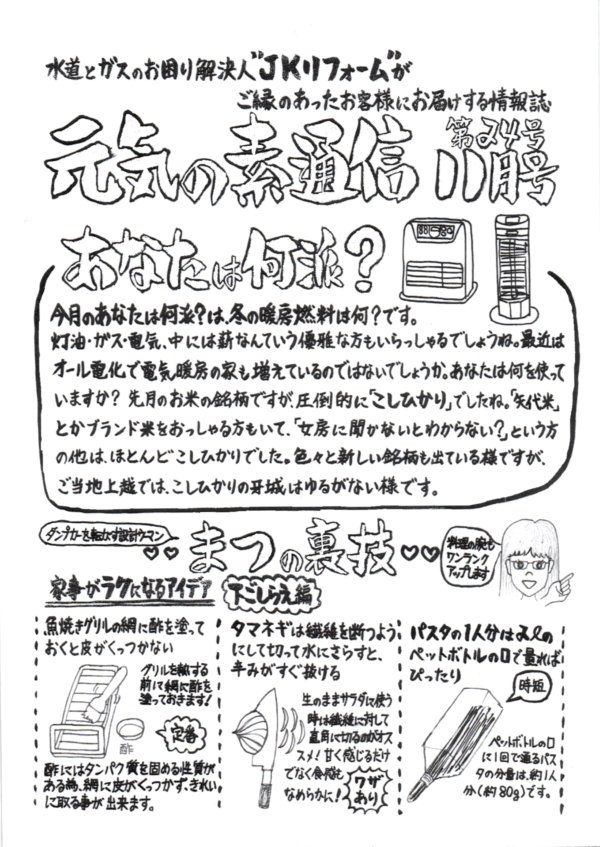 水道とガスのお困り解決人"JKリフォーム"が
ご縁のあったお客様にお届けする情報誌
元気の素通信 第24号 11月号
あなたは何派?
今月のあなたは何派?は、冬の暖房燃料は何?です。
灯油・ガス・電気、中には薪なんていう優雅な方もいらっしゃるでしょうね。最近は
オール電化で電気暖房の家も増えているのではないでしょうか。あなたは何を使って
いますか? 先月のお米の銘柄ですが、圧倒的に「こしひかり」でしたね。「矢代米」
とかブランド米をおっしゃる方もいて、「女房に聞かないとわからない?」という方
の他は、ほとんどこしひかりでした。色々と新しい銘柄も出ている様ですが、
ご当地上越では、こしひかりの牙城はゆるがない様です。
ダンプカーを転がす設計ウーマン
まつの裏技
料理の腕も
ワンランク
アップします
家事がラクになるアイデア 下ごしらえ編
魚焼きグリルの網に酢を塗って
おくと皮がくっつかない
グリルを熱する
前に網に酢を
塗っておきます!
定番
酢
酢にはタンパク質を固める性質が
ある為、網に皮がくっつかず、きれい
に取る事が出来ます。
タマネギは繊維を断つよう
にして切って水にさらすと、
辛みがすぐ抜ける
生のままサラダに使う
時は繊維に対して
直角に切るのがオス
スメ!甘く感じるだけ
でなく食感も
なめらかに!
ワザ
あり
パスタの1人分は2ℓの
ペットボトルの口で量れば
ぴったり
時短
ペットボトルの口
に1回で通るパス
タの分量は、約1人
分(約80g)です。